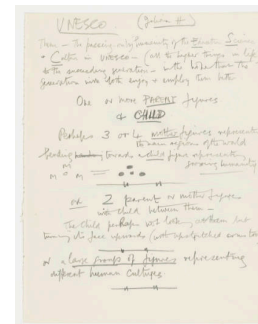 UNESCO (Julian H)
Theme — the passing on by humanity of the Science
+ Culture in UNESCO — (all the higher things in life
to the succeeding generation — with
generation will both enjoy & employ them better
One or more PARENT figures
& CHILD
Perhaps 3 or 4 mother figures represent
the main regions of the world
bending towards a child figure representing
growing humanity
M
M M
or 2 parent or mother figures
with child between them —
The child perhaps
turning its face upwards (with outstretched arms
or a large group of figures representing
different human cultures